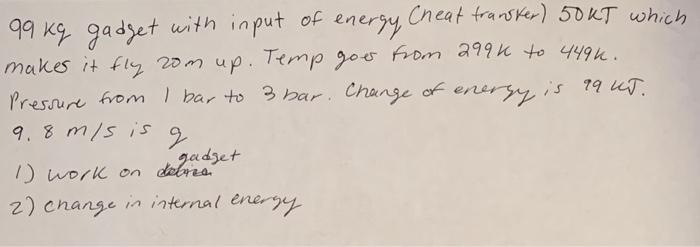 99 kg gadget with input of energy (heat transfer) 50 KJ which
makes it fly 20m up. Temp goes from 299k to 449k.
Pressure from 1 bar to 3 bar. Change of energy is 99 kJ.
9.8 m/s is g
1) work on gadget
2) change in internal energy